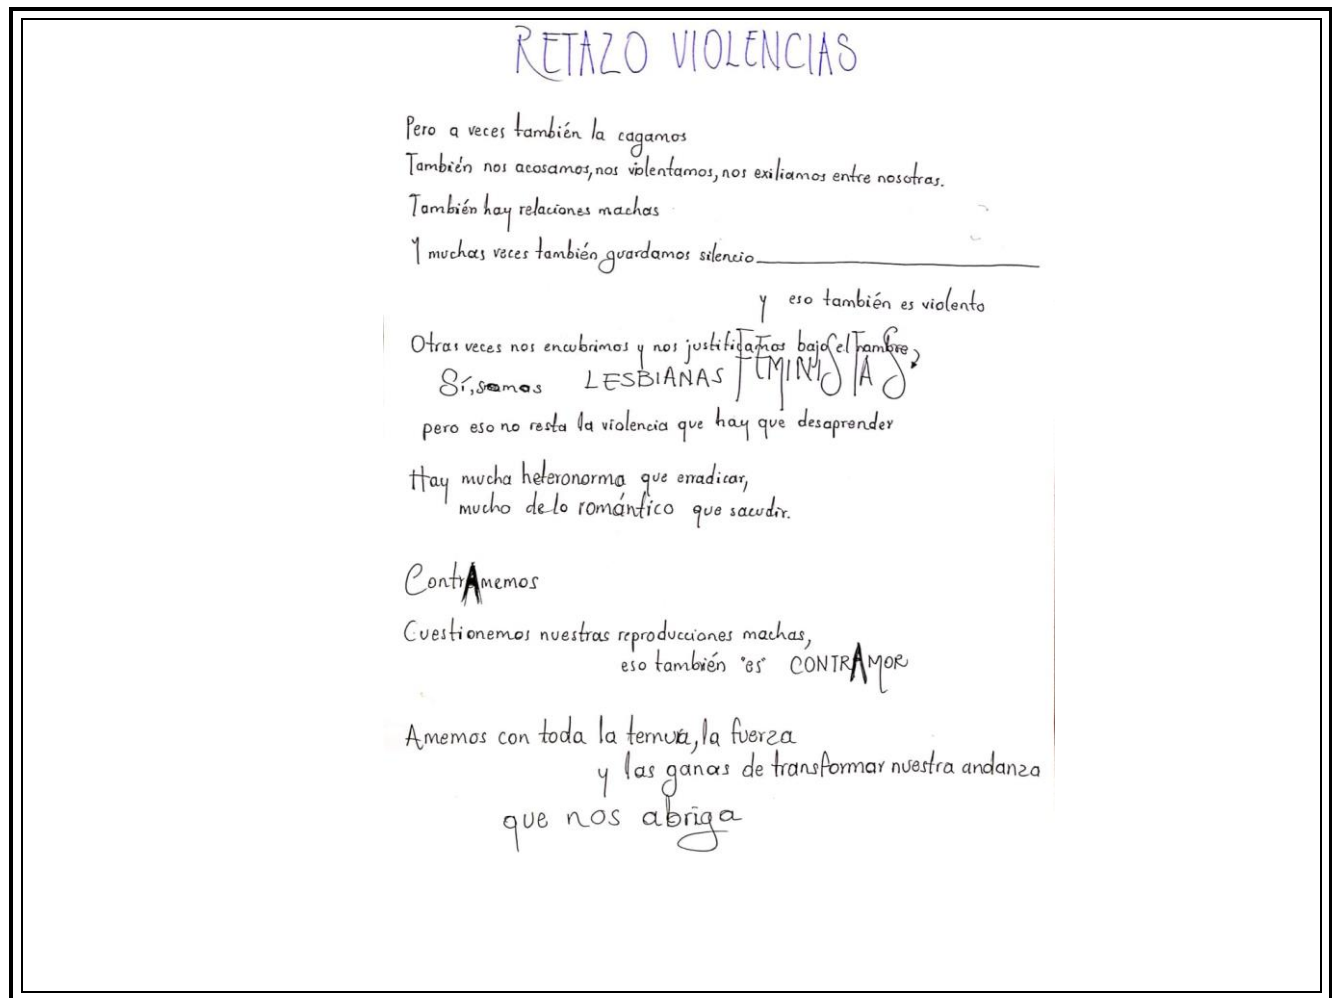 RETAZO VIOLENCIAS
Pero a veces también la cagamos
También nos acosamos, nos violentamos, nos exiliamos entre nosotras.
También hay relaciones machas
Y muchas veces también guardamos silencio
y eso también es violento
Otras veces nos encubrimos y nos justificamos bajo el nombre,
Sí, somos LESBIANAS FEMINISTAS
pero eso no resta la violencia que hay que desaprender
Hay mucha heteronorma que erradicar,
mucho de lo romántico que sacudir.
ContrAmemos
Cuestionemos nuestras reproducciones machas,
eso también "es" CONTRAMOR
Amemos con toda la ternura, la fuerza
y las ganas de transformar nuestra andanza
que nos abriga